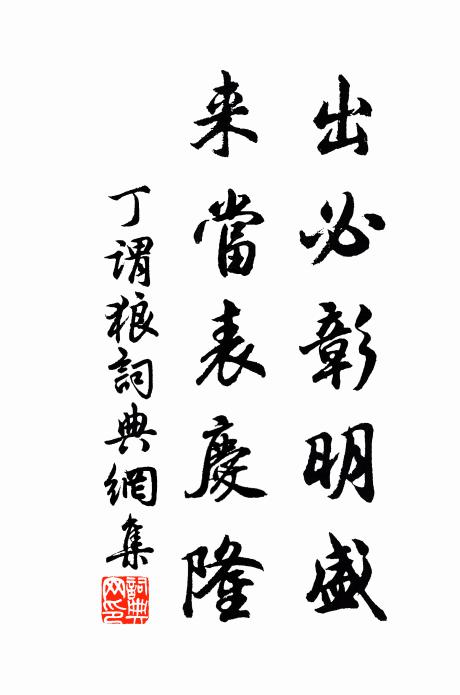 出必彰明盛
来當表慶隆
丁謂狼詞典網集
詞典網印